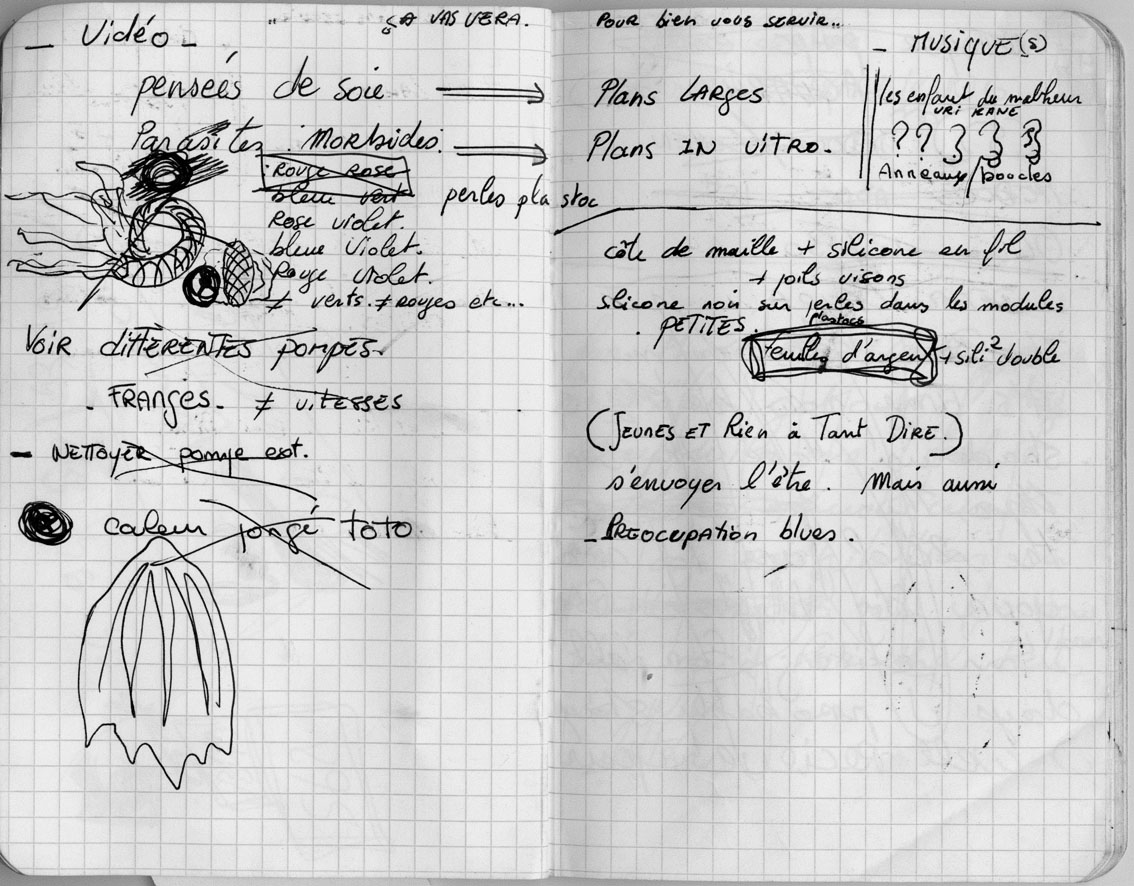 ça VAS VERA.
_ Vidéo _
pensées de soie
Parasites Morbides.
Rouge Rose
bleue vert
Rose violet.
bleue Violet.
Rouge Violet.
≠ verts. ≠ Rouges etc...
perles plastoc
Voir différentes pompes.
. Franges. ≠ vitesses
- Nettoyer pompe ext.
couleur toto
Pour bien vous servir..
_ Musique(s)
Plans Larges
Plans in vitro.
les enfant du malheur
URI KANE
? ? ? ? ?
Anneaux/boucles
côte de maille + silicone en fil
+ poils visons
slicone noir sur perles dans les modules
plastocs
. PETITES.
d'argent + sili² double
(Jeunes et Rien à Tant Dire.)
s'envoyer l'être. Mais aussi
_ Préocupation blues.